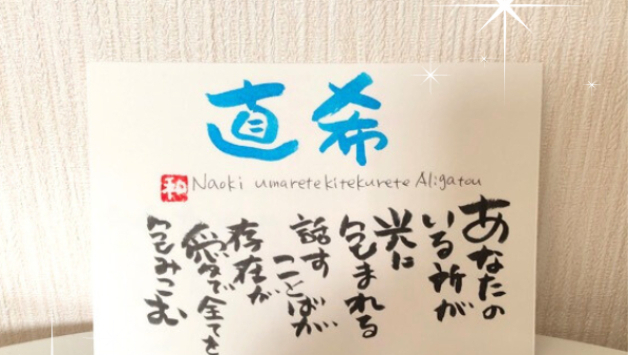 直希
和
Naoki umaretekitekurete Aligatou
あなたの
いる所が
光に
包まれる
話す
ことばが
存在が
愛で全てを
包みこむ